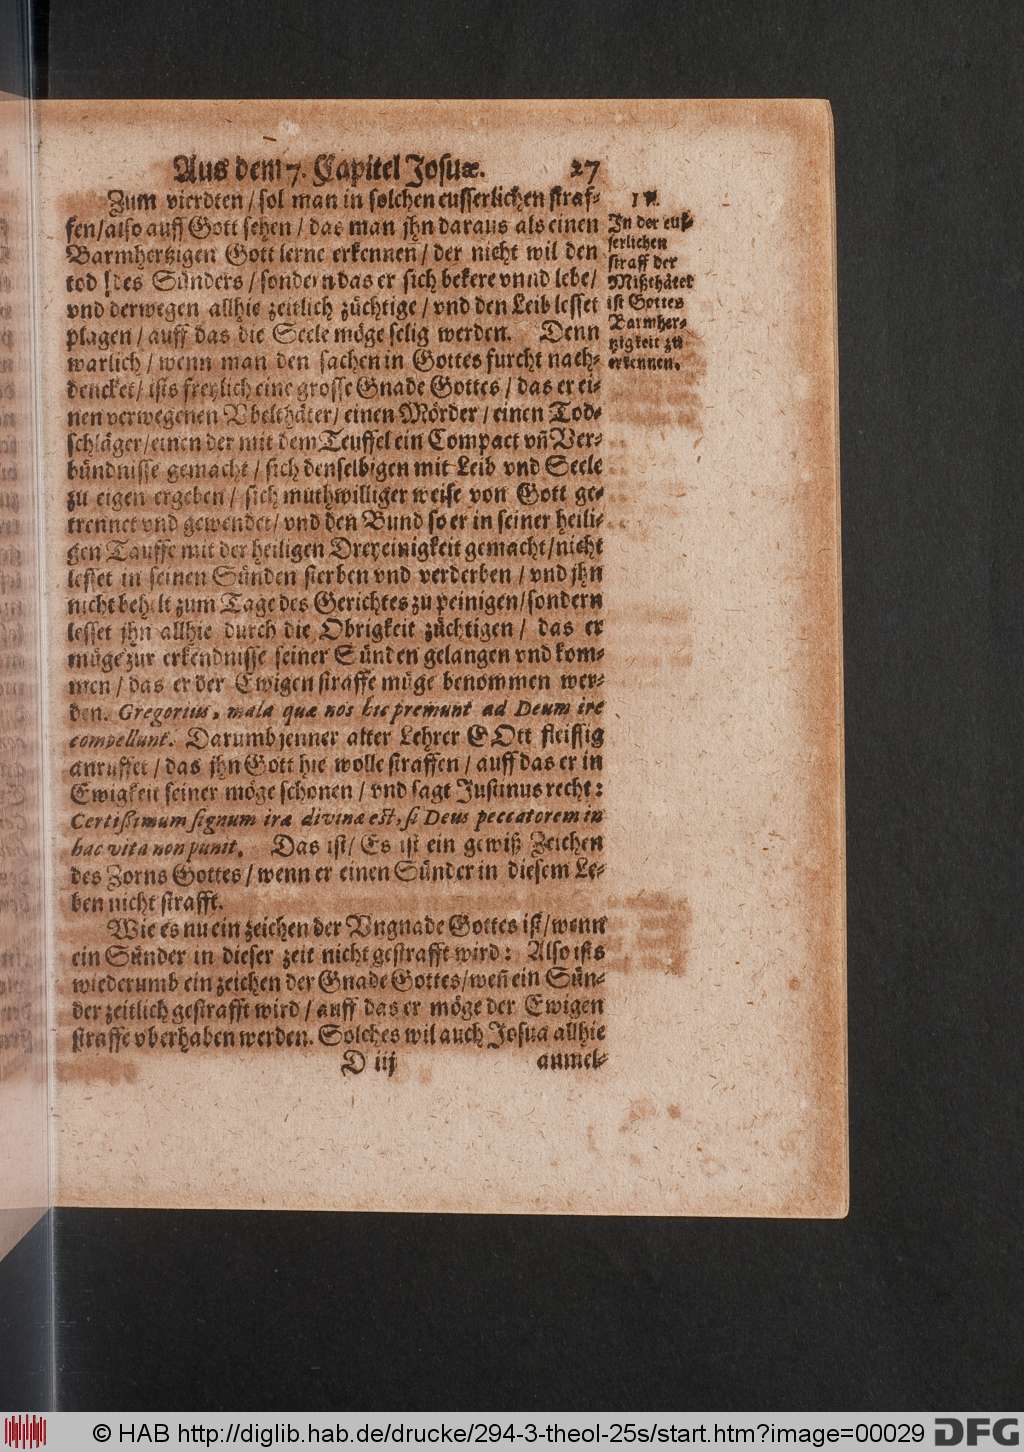 Aus dem 7. Capitel Josuæ. 27
Zum vierdten / sol man in solchen eusserlichen straf-
fen / also auff Gott sehen / das man jhn daraus als einen
Barmhertzigen Gott lerne erkennen / der nicht wil den
tod des Sünders / sondern das er sich bekere vnnd lebe /
vnd derwegen allhie zeitlich züchtige / vnd den Leib lesset
plagen / auff das die Seele möge selig werden. Denn
warlich / wenn man den sachen in Gottes furcht nach-
dencket / ists freylich eine grosse Gnade Gottes / das er ei-
nen verwegenen Vbelthäter / einen Mörder / einen Tod-
schläger / einen der mit dem Teuffel ein Compact vñ Ver-
bündnisse gemacht / sich denselbigen mit Leib vnd Seele
zu eigen ergeben / sich muthwilliger weise von Gott ge-
trennet vnd gewendet / vnd den Bund so er in seiner heili-
gen Tauffe mit der heiligen Dreyeinigkeit gemacht / nicht
lesset in seinen Sünden sterben vnd verderben / vnd jhn
nicht behelt zum Tage des Gerichtes zu peinigen / sondern
lesset jhn allhie durch die Obrigkeit züchtigen / das er
müge zur erkendnisse seiner Sünden gelangen vnd kom-
men / das er der Ewigen straffe müge benommen wer-
den. Gregorius, mala quæ nos hic premunt ad Deum ire
compellunt. Darumb jenner alter Lehrer GOtt fleissig
anruffet / das jhn Gott hie wolle straffen / auff das er in
Ewigkeit seiner möge schonen / vnd sagt Justinus recht:
Certißimum signum iræ divinæ est, si Deus peccatorem in
hac vita non punit. Das ist / Es ist ein gewiß Zeichen
des Zorns Gottes / wenn er einen Sünder in diesem Le-
ben nicht strafft.
Wie es nu ein zeichen der Vngnade Gottes ist / wenn
ein Sünder in dieser zeit nicht gestrafft wird: Also ists
wiederumb ein zeichen der Gnade Gottes / weñ ein Sün-
der zeitlich gestrafft wird / auff das er möge der Ewigen
straffe vberhaben werden. Solches wil auch Josua allhie
D iij anmel-
IV.
In der eus-
serlichen
straff der
Mißthäter
ist Gottes
Barmher-
tzigkeit zu
erkennen.
© HAB http://diglib.hab.de/drucke/294-3-theol-25s/start.htm?image=00029 DFG